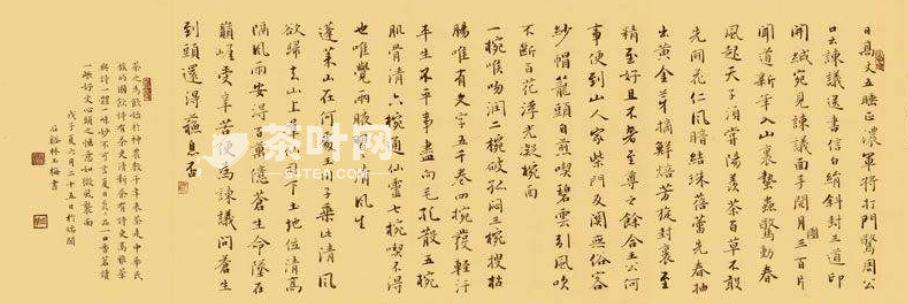 日高丈五睡正濃軍將打門驚周公
口云諫議送書信白絹斜封三道印
開緘宛見諫議面手閱月三百片
聞道新年入山裏蟄蟲驚動春
風起天子須嘗陽羨茶百草不敢
先開花仁風暗結珠蓓蕾先春抽
出黃金芽摘鮮焙芳旋封裹至
精至好且不奢至尊之餘合王公何
事便到山人家柴門反關無俗客
紗帽籠頭自煎喫碧雲引風吹
不斷白花浮光凝椀面
一椀喉吻潤二椀破孤悶三椀搜枯
腸唯有文字五千卷四椀發輕汗
平生不平事盡向毛孔散五椀
肌骨清六椀通仙靈七椀喫不得
也唯覺兩腋習習清風生
蓬萊山在何處玉川子乘此清風
欲歸去山上羣仙司下土地位清高
隔風雨安得百萬億蒼生命墮在
巔崖受辛苦便為諫議問蒼生
到頭還得蘇息否
茶之為飲始於神農數千年來茶是中華民
族的國飲詩有茶更清新茶有詩更高雅茶
與詩一體一味妙不可言夏日炎炎品一口香茗讀
一首好文心頭之愜意如微風襲面
戊子夏六月二十五日於
林玉梅書
茶叶网